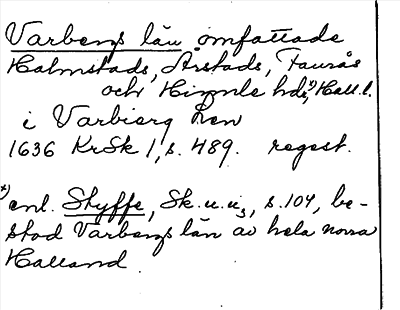 Varbergs län omfattade
Halmstads, Årstads, Faurås
och Himle hds,*) Hall. l.
i Varbierg Len
1636 KrSk 1, s. 489. regest.
*) enl. Styffe, Sk. u. u3, s. 104, be-
stod Varbergs län av hela norra
Halland.